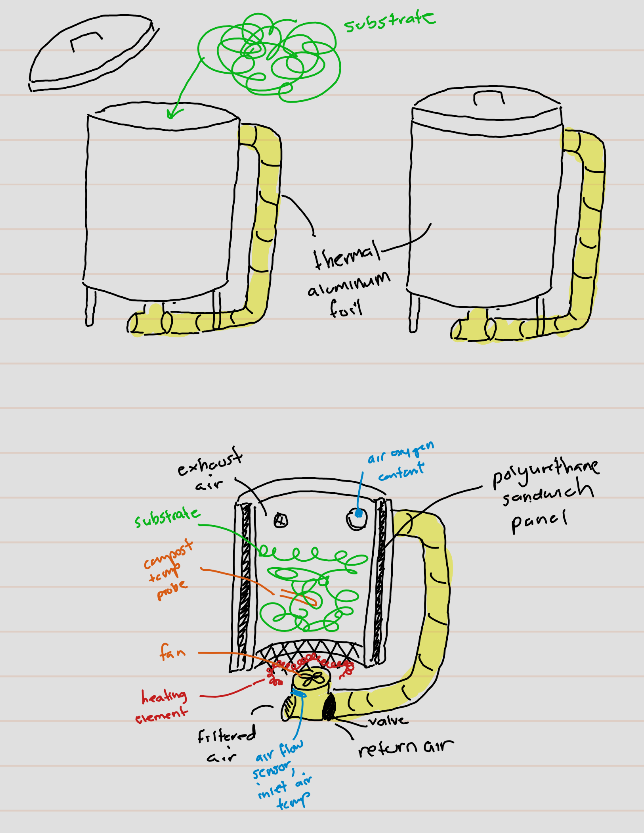 substrate
thermal
aluminum
foil
exhaust
air
air oxygen
content
polyurethane
sandwich
panel
substrate
compost
temp
probe
fan
heating
element
filtered
air
air flow
sensor,
inlet air
temp
valve
return air